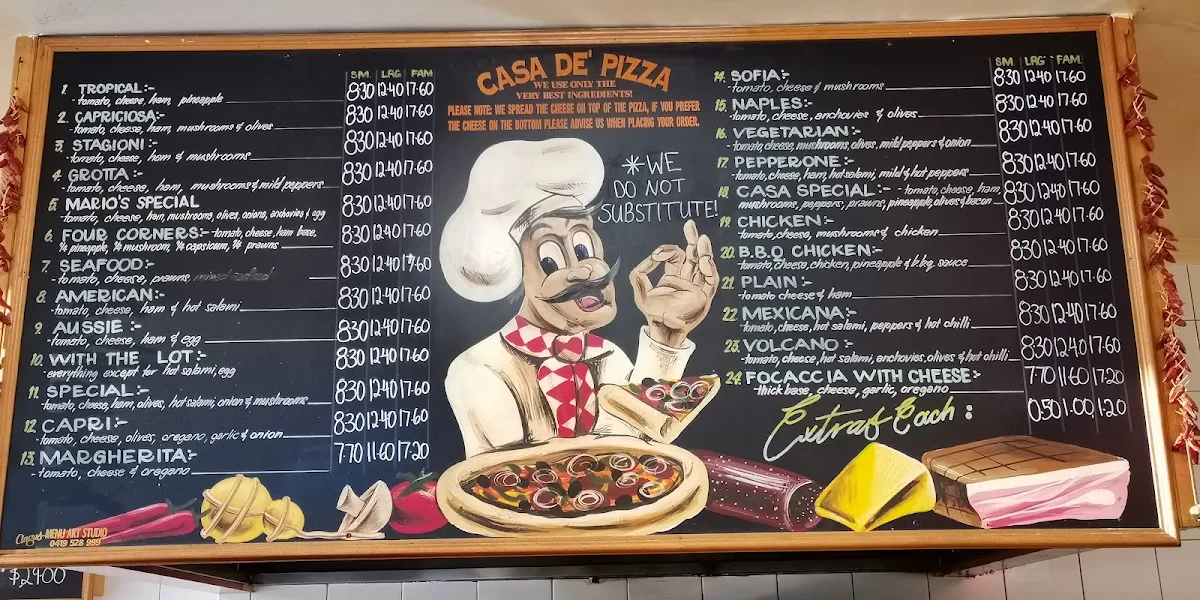 CASA DE' PIZZA
WE USE ONLY THE
VERY BEST INGREDIENTS!
PLEASE NOTE: WE SPREAD THE CHEESE ON TOP OF THE PIZZA, IF YOU PREFER
THE CHEESE ON THE BOTTOM PLEASE ADVISE US WHEN PLACING YOUR ORDER.
*WE
DO NOT
SUBSTITUTE!
SM. LRG FAM
1. TROPICAL:- 8.30 12.40 17.60
-tomato, cheese, ham, pineapple
2. CAPRICIOSA:- 8.30 12.40 17.60
-tomato, cheese, ham, mushrooms & olives
3. STAGIONI:- 8.30 12.40 17.60
-tomato, cheese, ham & mushrooms
4. GROTTA:- 8.30 12.40 17.60
tomato, cheese, ham, mushrooms & mild peppers
5. MARIO'S SPECIAL 8.30 12.40 17.60
-tomato, cheese, ham, mushrooms, olives, onions, anchovies & egg
6. FOUR CORNERS:- tomato, cheese, ham base, 8.30 12.40 17.60
¼ pineapple, ¼ mushroom, ¼ capsicum, ¼ prawns
7. SEAFOOD:- 8.30 12.40 17.60
-tomato, cheese, prawns,
8. AMERICAN:- 8.30 12.40 17.60
-tomato, cheese, ham & hot salami
9. AUSSIE:- 8.30 12.40 17.60
-tomato, cheese, ham & egg
10. WITH THE LOT:- 8.30 12.40 17.60
-everything except for hot salami, egg
11. SPECIAL:- 8.30 12.40 17.60
-tomato, cheese, ham, olives, hot salami, onion & mushrooms
12. CAPRI:- 8.30 12.40 17.60
-tomato, cheese, olives, oregano, garlic & onion
13. MARGHERITA:- 7.70 11.60 17.20
-tomato, cheese & oregano
SM. LRG FAM
14. SOFIA:- 8.30 12.40 17.60
-tomato, cheese & mushrooms
15. NAPLES:- 8.30 12.40 17.60
-tomato, cheese, anchovies & olives
16. VEGETARIAN:- 8.30 12.40 17.60
-tomato, cheese, mushrooms, olives, mild peppers & onion
17. PEPPERONE:- 8.30 12.40 17.60
-tomato, cheese, ham, hot salami, mild & hot peppers
18. CASA SPECIAL:- -tomato, cheese, ham, 8.30 12.40 17.60
mushrooms, peppers, prawns, pineapple, olives & bacon
19. CHICKEN:- 8.30 12.40 17.60
-tomato, cheese, mushrooms & chicken
20. B.B.Q CHICKEN:- 8.30 12.40 17.60
-tomato, cheese, chicken, pineapple & b.b.q. sauce
21. PLAIN:- 8.30 12.40 17.60
-tomato cheese & ham
22. MEXICANA:- 8.30 12.40 17.60
-tomato, cheese, hot salami, peppers & hot chilli
23. VOLCANO:- 8.30 12.40 17.60
-tomato, cheese, hot salami, anchovies, olives & hot chilli
24. FOCACCIA WITH CHEESE:- 7.70 11.60 17.20
-thick base, cheese, garlic, oregano
Extras Each: 0.50 1.00 1.20
Angus MENU ART STUDIO
0419 528 999
$24.00